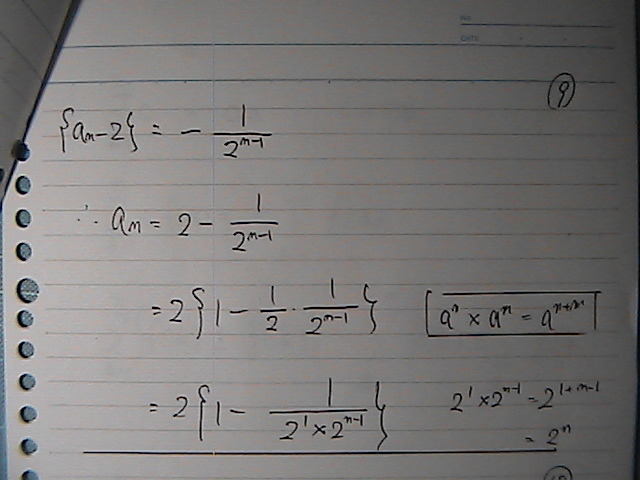 NO.
DATE
⑨
{aₙ-2} = - 1/2ⁿ⁻¹
∴ aₙ = 2 - 1/2ⁿ⁻¹
= 2{1 - 1/2 · 1/2ⁿ⁻¹}
= 2{1 - 1/(2¹×2ⁿ⁻¹)}
2¹×2ⁿ⁻¹ = 2¹⁺ⁿ⁻¹
= 2ⁿ